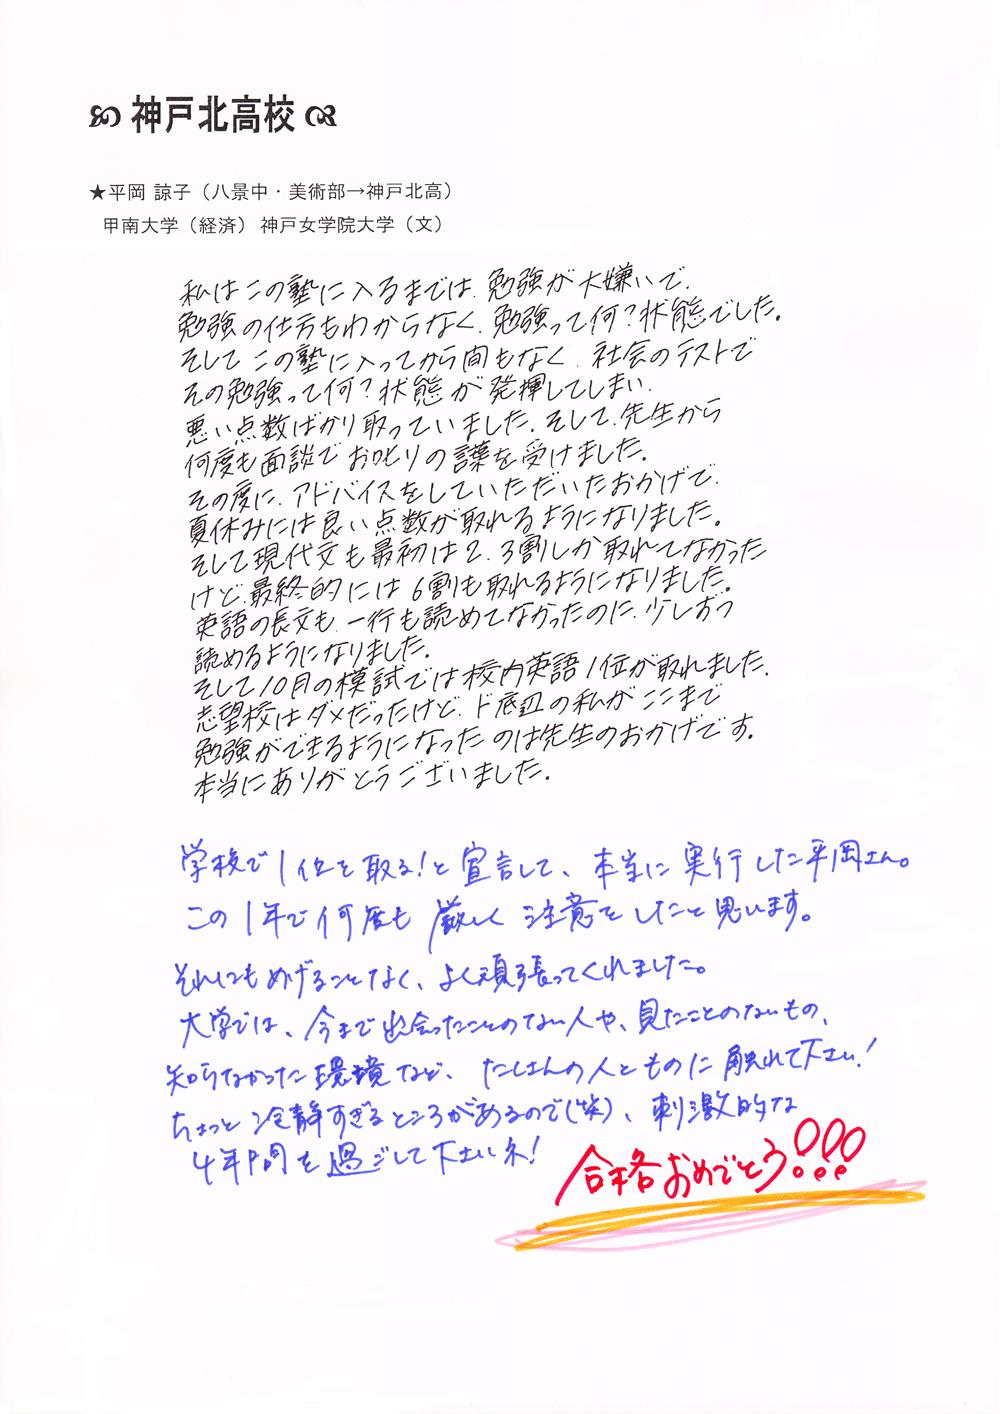 神戸北高校
★平岡 諒子（八景中・美術部→神戸北高）
甲南大学（経済） 神戸女学院大学（文）
私はこの塾に入るまでは、勉強が大嫌いで、
勉強の仕方もわからなく、勉強って何？状態でした。
そしてこの塾に入ってから間もなく、社会のテストで
その勉強って何？状態が発揮してしまい、
悪い点数ばかり取っていました。そして、先生から
何度も面談でお叱りの言葉を受けました。
その度に、アドバイスをしていただいたおかげで、
夏休みには良い点数が取れるようになりました。
そして現代文も最初は2、3割しか取れてなかった
けど、最終的には6割も取れるようになりました。
英語の長文も、一行も読めてなかったのに、少しずつ
読めるようになりました。
そして10月の模試では校内英語1位が取れました。
志望校はダメだったけど、ド底辺の私がここまで
勉強ができるようになったのは先生のおかげです。
本当にありがとうございました。
学校で1位を取る！と宣言して、本当に実行した平岡さん。
この1年で何度も厳しく注意をしたと思います。
それにもめげることなく、よく頑張ってくれました。
大学では、今まで出会ったことのない人や、見たことのないもの、
知らなかった環境など、たくさんの人とものに触れて下さい！
ちょっと冷静すぎるところがあるので(笑)、刺激的な
4年間を過ごして下さいネ！
合格おめでとう!!!